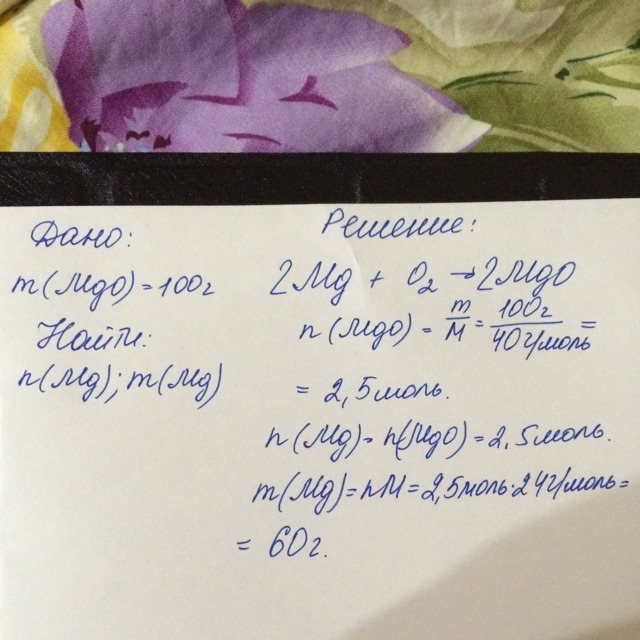 Дано:
m(MgO) = 100г
Найти:
n(Mg); m(Mg)
Решение:
2Mg + O₂ → 2MgO
n(MgO) = m/M = 100г/40г/моль =
= 2,5моль.
n(Mg) = n(MgO) = 2,5моль.
m(Mg) = nM = 2,5моль·24г/моль =
= 60г.